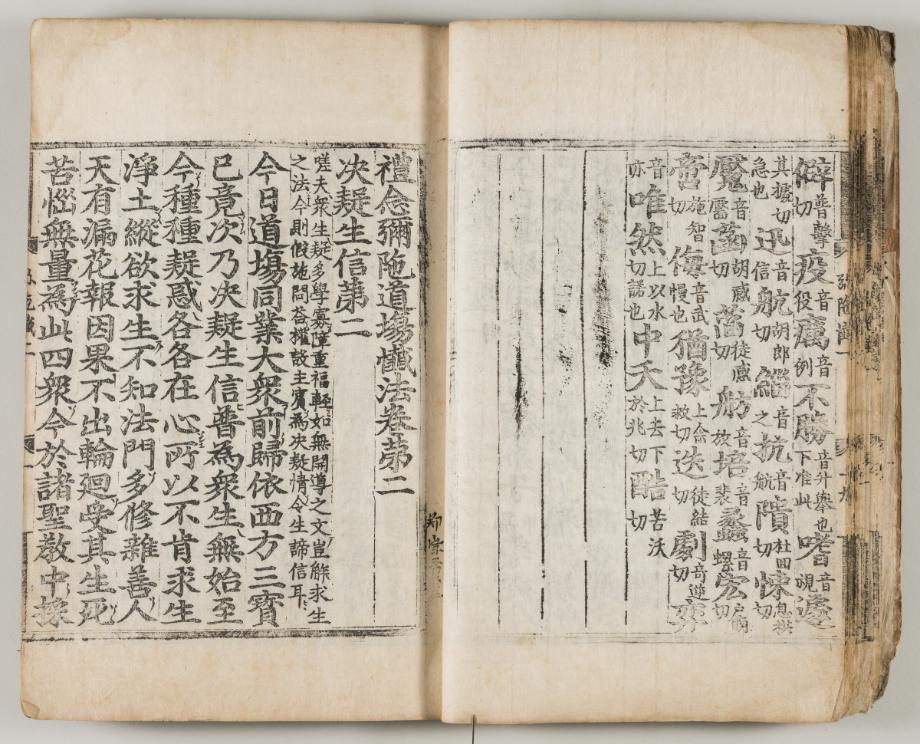 僻普擊切疫音役癘音例不勝音外舉也下准此嗜音視遽
其據切急也迅音信航胡郎切鯔音之抗音航隤杜回切悚息拱切
魘音黶菡胡感切萏徒感切舫音放培音裴蠡音螺宏戶萌切
啻施智切侮音武慢也猶豫上余救切迭徒結切劇奇逆切弈
音亦唯然上以水切諾也中夭上去下於兆切酷苦沃切
彌陀懺一
禮念彌陁道塲懺法卷第二
決疑生信第二
嗟夫衆生疑多學寡障重福輕如無開導之文豈能求生
之法今則假施問荅權啟主賔為決疑情令生諦信耳
今日道塲同業大衆前歸依西方三寳
已竟次乃決疑生信普為衆生無始至
今種種疑惑各各在心所以不肯求生
淨土縱欲求生不知法門多修雜善人
天有漏花報因果不出輪廻受其生死
苦惱無量爲此四衆今於諸聖教中採